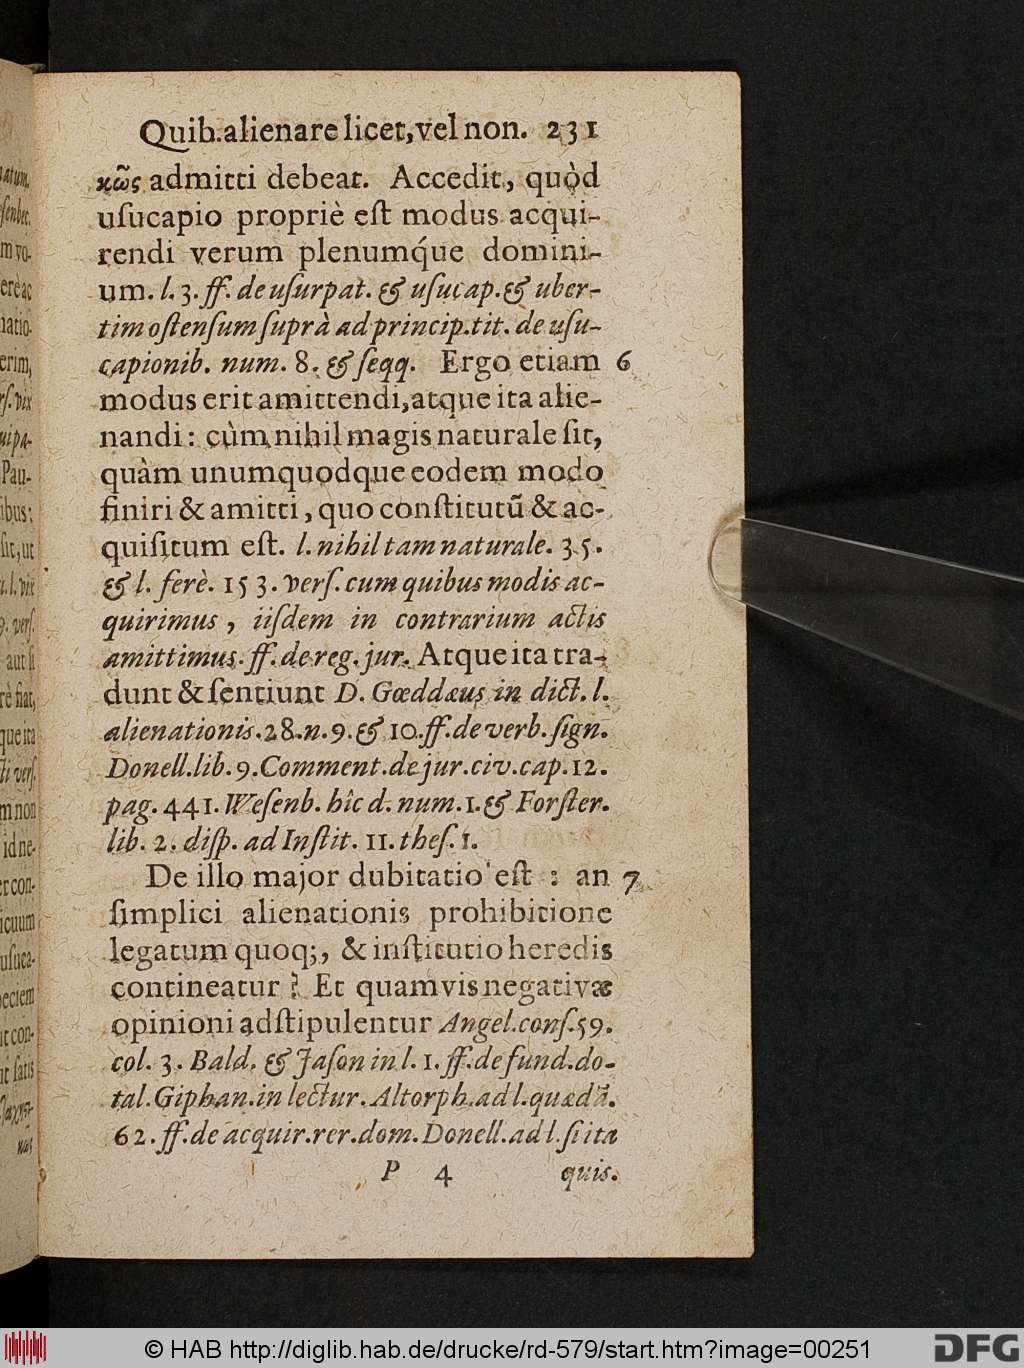 Quib. alienare licet, vel non. 231
κῶς admitti debeat. Accedit, quòd
uſucapio propriè eſt modus acqui-
rendi verum plenumq́ue domini-
um. l. 3. ff. de uſurpat. & uſucap. & uber-
tim oſtenſum ſuprà ad princip. tit. de uſu-
capionib. num. 8. & ſeqq. Ergo etiam 6
modus erit amittendi, atque ita alie-
nandi: cùm nihil magis naturale ſit,
quàm unumquodque eodem modo
finiri & amitti, quo conſtitutũ & ac-
quiſitum eſt. l. nihil tam naturale. 35.
& l. ferè. 153. verſ. cum quibus modis ac-
quirimus, iiſdem in contrarium actis
amittimus. ff. de reg. jur. Atque ita tra-
dunt & ſentiunt D. Gœddæus in dict. l.
alienationis. 28. n. 9. & 10. ff. de verb. ſign.
Donell. lib. 9. Comment. de jur. civ. cap. 12.
pag. 441. Weſenb. hîc d. num. 1. & Forſter.
lib. 2. diſp. ad Inſtit. 11. theſ. 1.
De illo major dubitatio eſt: an 7
ſimplici alienationis prohibitione
legatum quoq;, & inſtitutio heredis
contineatur? Et quamvis negativæ
opinioni adſtipulentur Angel. conſ. 59.
col. 3. Bald. & Jaſon in l. 1. ff. de fund. do-
tal. Giphan. in lectur. Altorph. ad l. quædã.
62. ff. de acquir. rer. dom. Donell. ad l. ſi ita
P 4 quis.
© HAB http://diglib.hab.de/drucke/rd-579/start.htm?image=00251
DFG